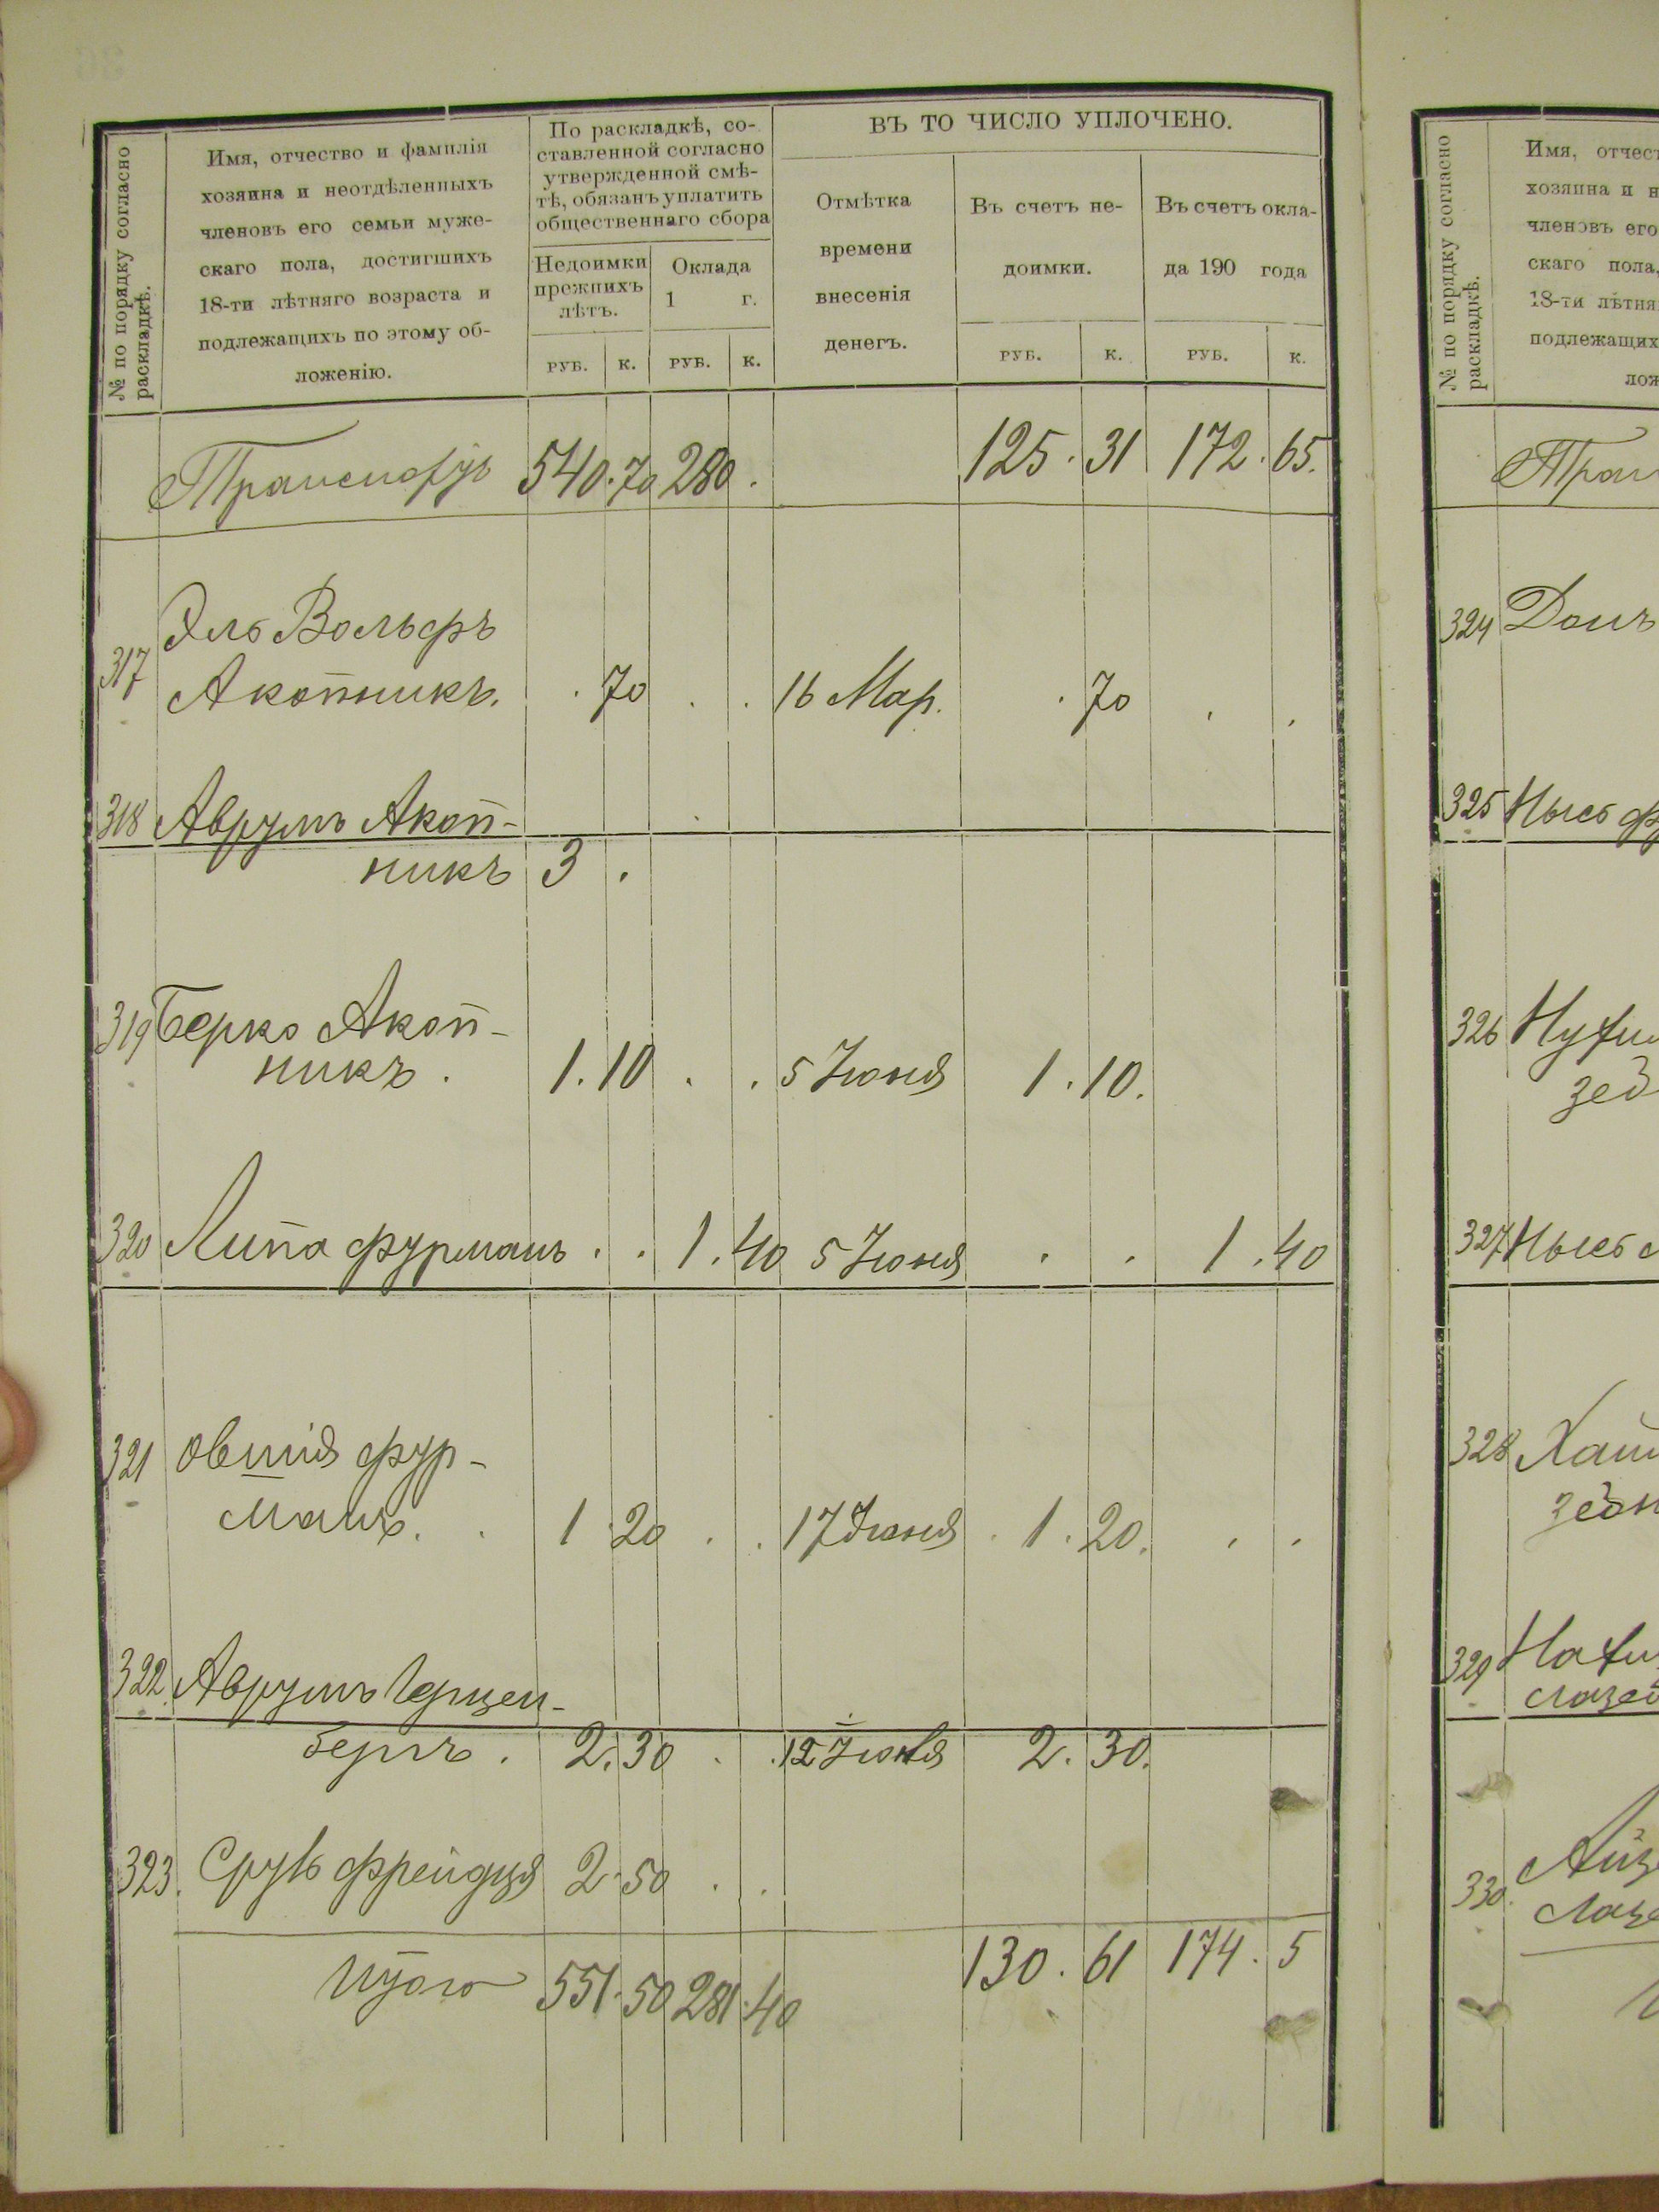 № по порядку согласно
раскладкѣ.
Имя, отчество и фамилія
хозяина и неотдѣленныхъ
членовъ его семьи муже-
скаго пола, достигшихъ
18-ти лѣтняго возраста и
подлежащихъ по этому об-
ложенію.
По раскладкѣ, со-
ставленной согласно
утвержденной смѣ-
тѣ, обязанъ уплатить
общественнаго сбора
Недоимки
прежнихъ
лѣтъ.
Оклада
1 г.
РУБ. К. РУБ. К.
ВЪ ТО ЧИСЛО УПЛОЧЕНО.
Отмѣтка
времени
внесенія
денегъ.
Въ счетъ не-
доимки.
Въ счетъ окла-
да 190 года
РУБ. К. РУБ. К.
540. 70 280. 125. 31 172. 65.
Эль Вольфъ
317 Акопникъ. . 70 . . 16 Мар. . 70 . .
318 Аврумъ Акоп-
никъ 3 .
319 Берко Акоп-
никъ . 1. 10 . . 5 Іюня 1. 10.
320 Липа Фурманъ . . 1. 40 5 Іюня . . 1. 40
321 Овшія Фур-
манъ. . 1 20 . . 17 Іюня . 1. 20. . .
322. Аврумъ Герцен-
бергъ . 2. 30 . . 12 Іюня 2. 30.
323. Сруль 2. 50 . .
Итого 551. 50 281. 40 130. 61 174. 5
№ по порядку согласно
раскладкѣ.
Имя, отчест
хозяина и н
членовъ его
скаго пола,
18-ти лѣтня
подлежащих
лож
Тран
324
325 Нысь Фу
326
зед
327 Нысь
328
329
330.